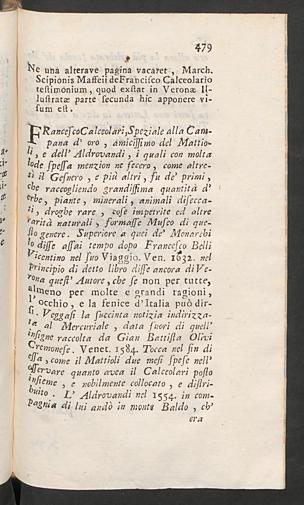 479
Ne una alterave pagina vacaret, March.
Scipionis Maffeii de Francisco Calceolario
testimonium, quod exstat in Veronæ Il-
lustratæ parte secunda hic apponere vi-
sum est.
FRancesco Calceolari, Speziale alla Cam-
pana d' oro, amicissimo del Mattio-
li, e dell' Aldrovandi, i quali con molta
lode spessa menzion ne fecero, come altre-
sì il Gesnero, e più altri, fu de' primi,
che raccogliendo grandissima quantità d'
erbe, piante, minerali, animali disecca-
ti, droghe rare, cose impetrite ed altre
rarità naturali, formasse Museo di que-
sto genere. Superiore a quei de' Monarchi
lo disse assai tempo dopo Francesco Belli
Vicentino nel suo Viaggio. Ven. 1632. nel
principio di detto libro disse ancora di Ve-
rona quest' Autore, che se non per tutte,
almeno per molte e grandi ragioni,
l' occhio, e la fenice d'Italia può dir-
si. Veggasi la succinta notizia indirizza-
ta al Mercuriale, data fuori di quell'
insigne raccolta da Gian Battista Olivi
Cremonese. Venet. 1584. Tocca nel fin di
essa, come il Mattioli due mesi spese nell'
osservare quanto avea il Calceolari posto
insieme, e nobilmente collocato, e distri-
buito. L' Aldrovandi nel 1554. in com-
pagnia di lui andò in monte Baldo, ch'
era